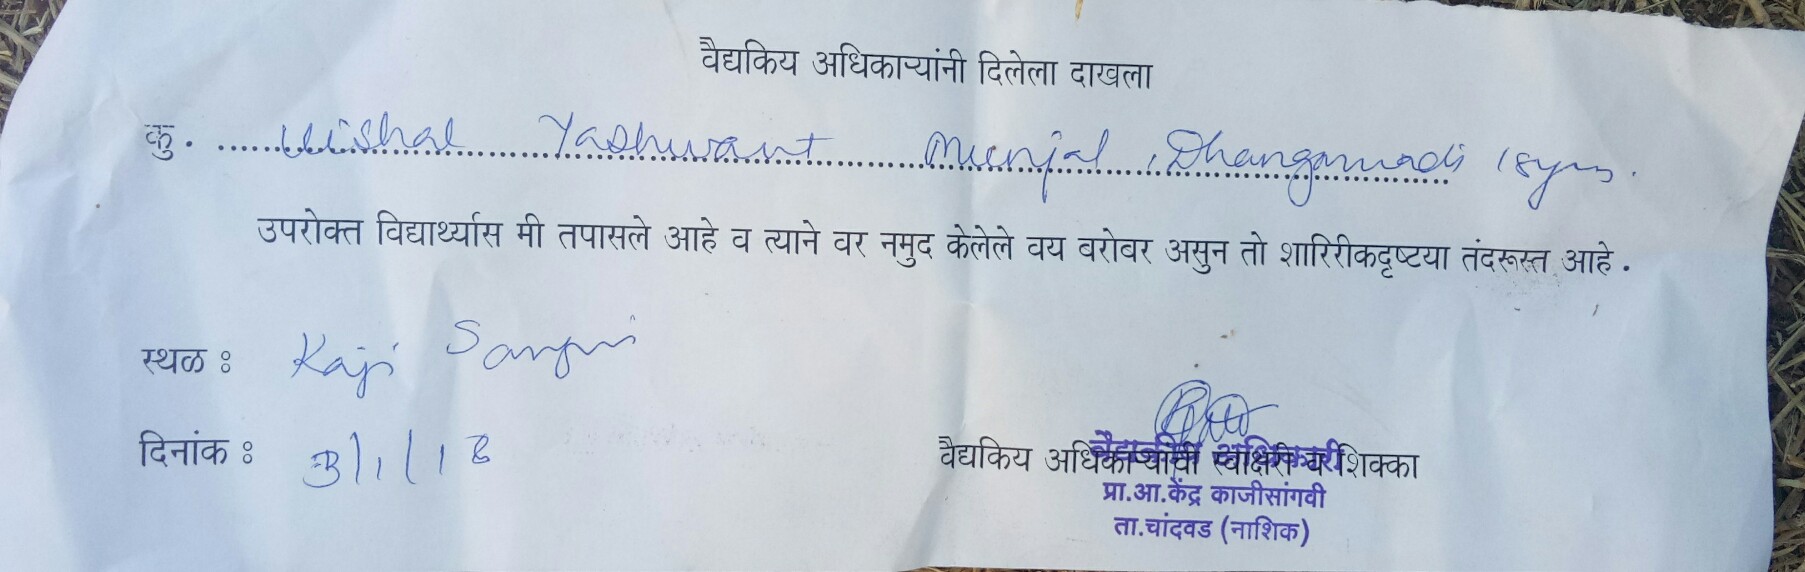 वैद्यकिय अधिकाऱ्यांनी दिलेला दाखला
कु. Vishal Yashwant Munjal, Dhangarwadi 18yrs.
उपरोक्त विद्यार्थ्यास मी तपासले आहे व त्याने वर नमुद केलेले वय बरोबर असुन तो शारिरीकदृष्टया तंदरूस्त आहे.
स्थळ : Kaji Sangvi
दिनांक : 3/1/18
वैद्यकिय अधिकाऱ्यांची स्वाक्षरी व शिक्का
वैद्यकीय अधिकारी
प्रा.आ.केंद्र काजीसांगवी
ता.चांदवड (नाशिक)